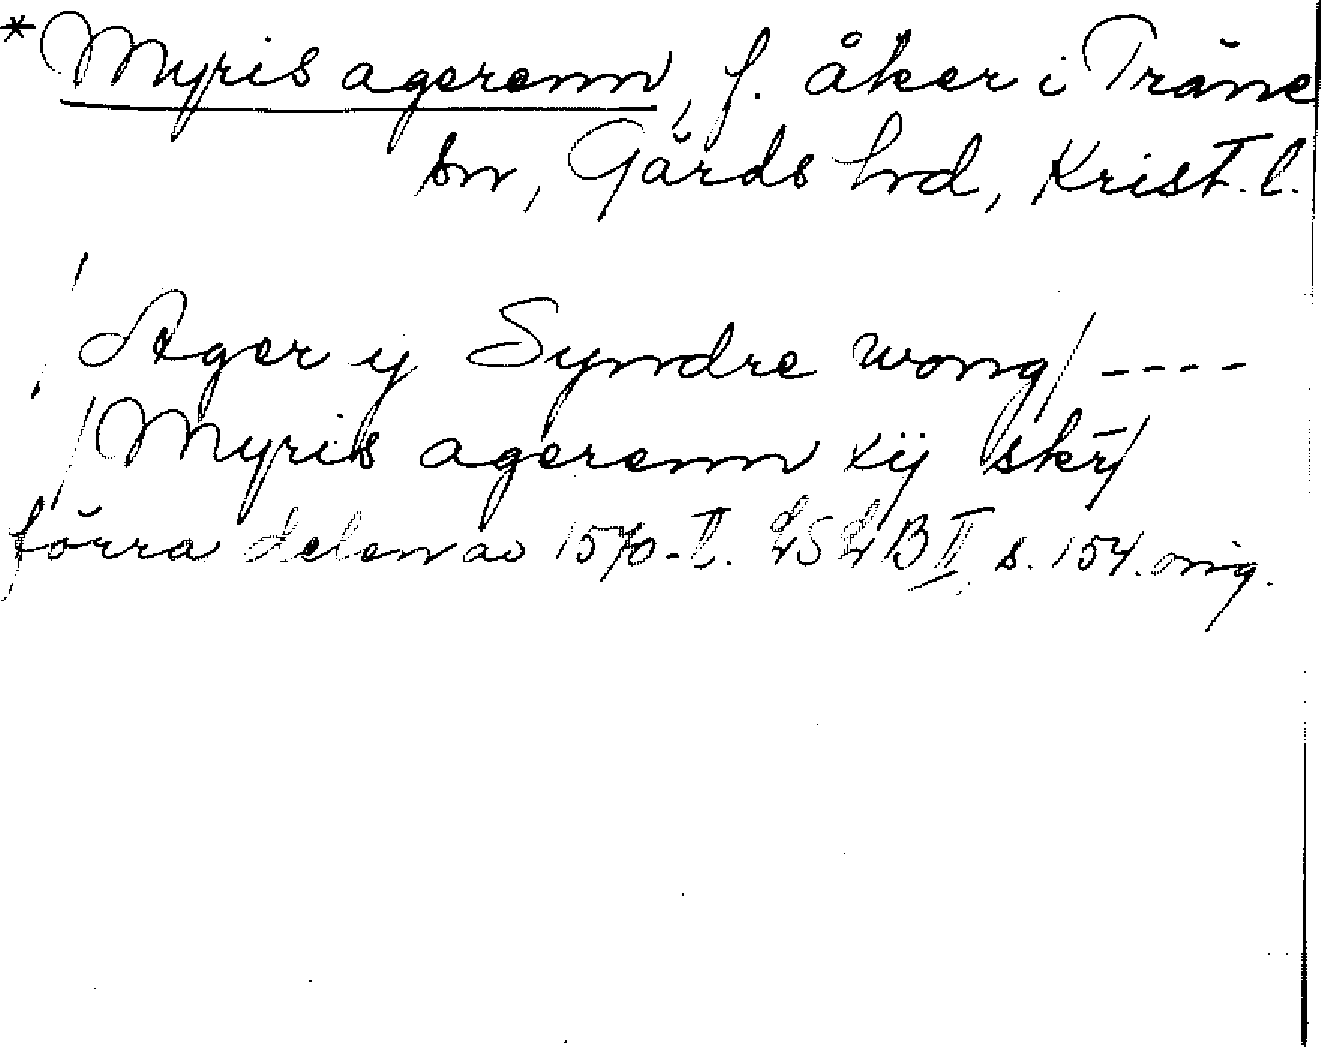 *Myris agerenn, f. åker i Träne
sn, Gärds hrd, Krist. l.
/Ager ij Syndre wong/ ----
/Myris agerenn xij skr̄/
förra delen av 1570-t. LSLB II, s. 154. orig.